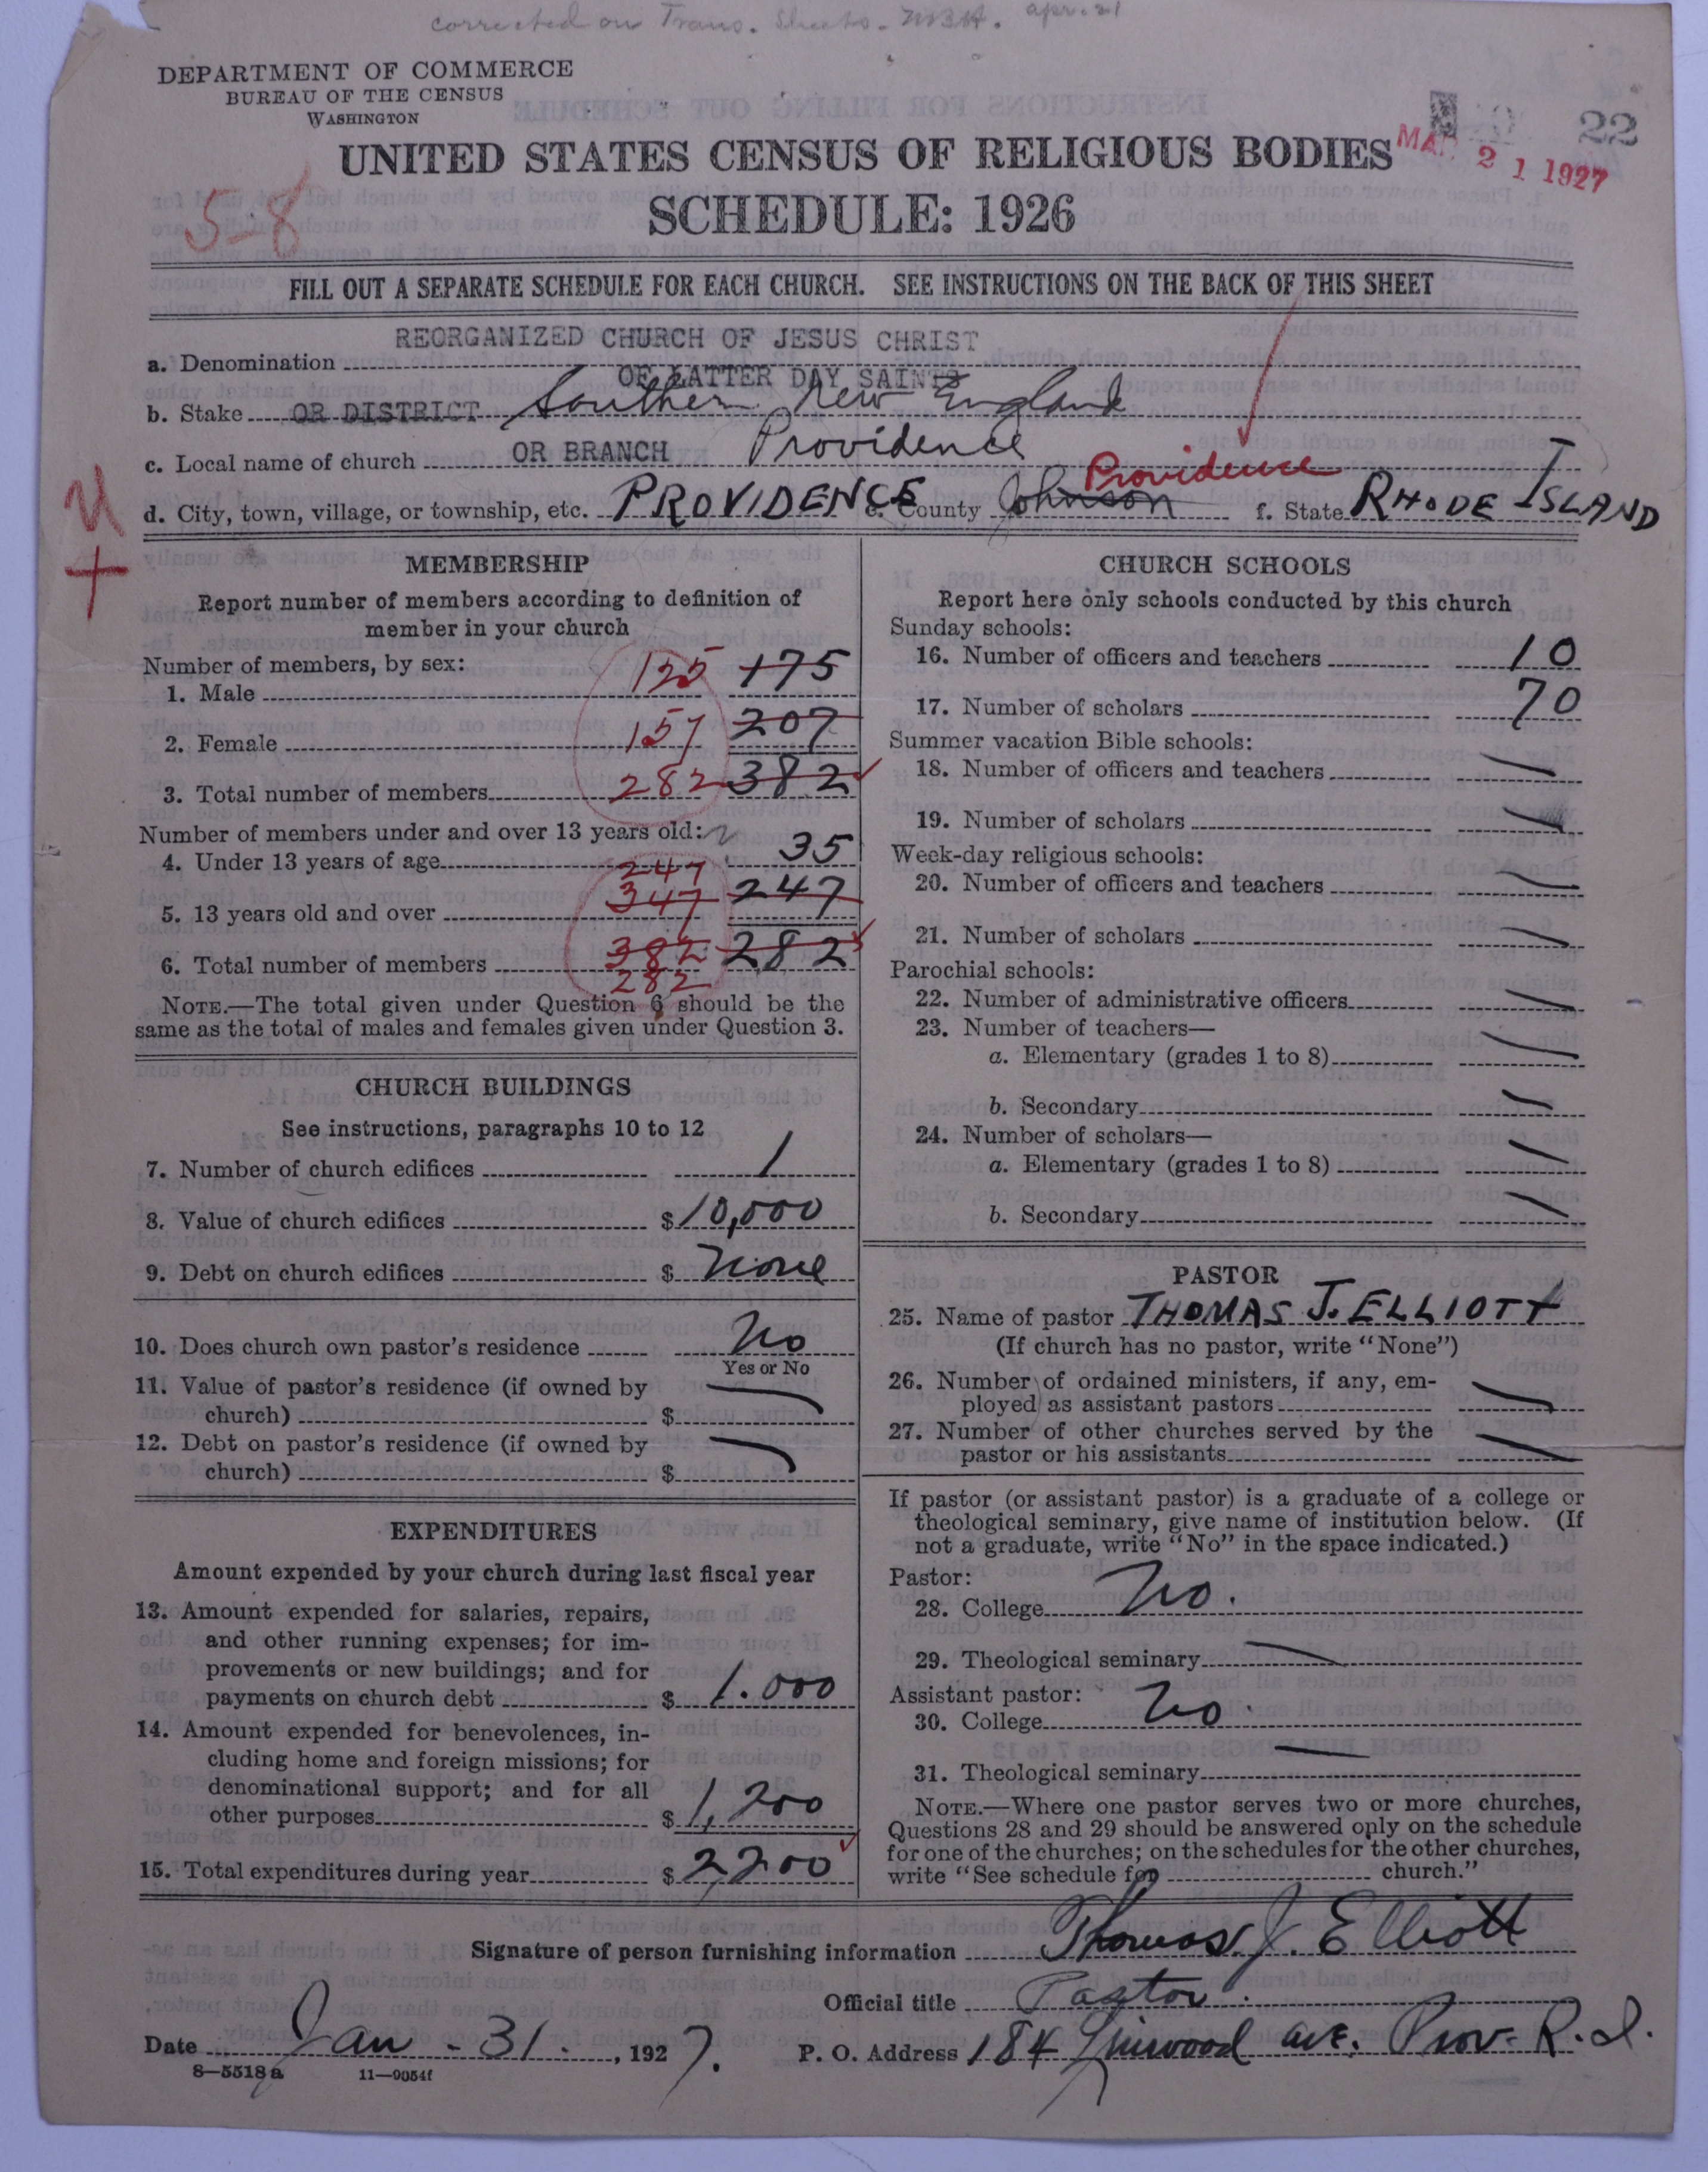 corrected on Trans. Sheets - apr. 21
DEPARTMENT OF COMMERCE
BUREAU OF THE CENSUS
WASHINGTON
22
UNITED STATES CENSUS OF RELIGIOUS BODIES
MAR 21 1927
5-8
SCHEDULE: 1926
FILL OUT A SEPARATE SCHEDULE FOR EACH CHURCH. SEE INSTRUCTIONS ON THE BACK OF THIS SHEET
REORGANIZED CHURCH OF JESUS CHRIST
a. Denomination
OF LATTER DAY SAINTS
b. Stake OR DISTRICT Southern New England
c. Local name of church OR BRANCH Providence
Providence
d. City, town, village, or township, etc. PROVIDENCE e. County Johnson f. State RHODE ISLAND
MEMBERSHIP
Report number of members according to definition of
member in your church
Number of members, by sex:
1. Male 125 175
2. Female 157 207
3. Total number of members 282 382
Number of members under and over 13 years old:
4. Under 13 years of age 35
247
5. 13 years old and over 347 247
6. Total number of members 382 282
282
NOTE.—The total given under Question 6 should be the
same as the total of males and females given under Question 3.
CHURCH BUILDINGS
See instructions, paragraphs 10 to 12
7. Number of church edifices 1
8. Value of church edifices $ 10,000
9. Debt on church edifices $ None
10. Does church own pastor's residence No
Yes or No
11. Value of pastor's residence (if owned by
church) $
12. Debt on pastor's residence (if owned by
church) $
EXPENDITURES
Amount expended by your church during last fiscal year
13. Amount expended for salaries, repairs,
and other running expenses; for im-
provements or new buildings; and for
payments on church debt $ 1.000
14. Amount expended for benevolences, in-
cluding home and foreign missions; for
denominational support; and for all
other purposes $ 1,200
15. Total expenditures during year $ 2200
CHURCH SCHOOLS
Report here only schools conducted by this church
Sunday schools:
16. Number of officers and teachers 10
17. Number of scholars 70
Summer vacation Bible schools:
18. Number of officers and teachers
19. Number of scholars
Week-day religious schools:
20. Number of officers and teachers
21. Number of scholars
Parochial schools:
22. Number of administrative officers
23. Number of teachers—
a. Elementary (grades 1 to 8)
b. Secondary
24. Number of scholars—
a. Elementary (grades 1 to 8)
b. Secondary
PASTOR
25. Name of pastor THOMAS J. ELLIOTT
(If church has no pastor, write "None")
26. Number of ordained ministers, if any, em-
ployed as assistant pastors
27. Number of other churches served by the
pastor or his assistants
If pastor (or assistant pastor) is a graduate of a college or
theological seminary, give name of institution below. (If
not a graduate, write "No" in the space indicated.)
Pastor:
28. College No.
29. Theological seminary
Assistant pastor:
30. College No.
31. Theological seminary
NOTE.—Where one pastor serves two or more churches,
Questions 28 and 29 should be answered only on the schedule
for one of the churches; on the schedules for the other churches,
write "See schedule for church."
Signature of person furnishing information Thomas J. Elliott
Official title Pastor.
Date Jan - 31. , 1927. P. O. Address 184 Linwood ave. Prov. R.I.
8—5518a 11—9054f